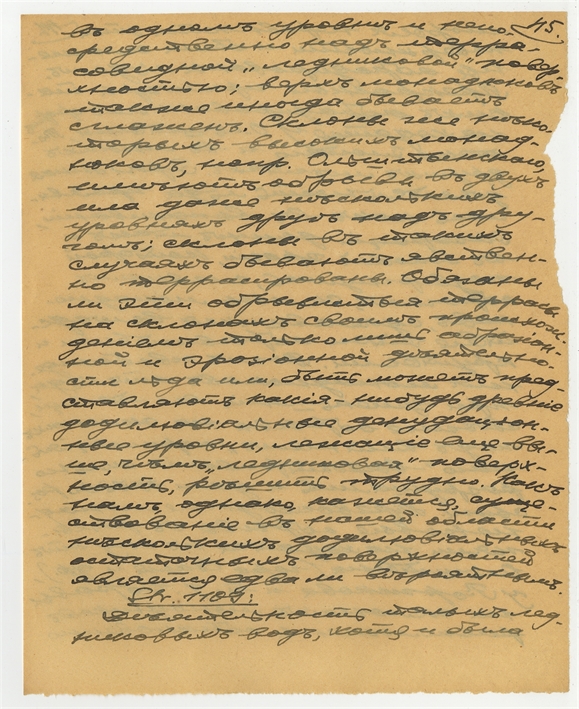 45.
въ одномъ уровнѣ и непо-
средственно надъ терра-
совидной „ледниковой“ повер-
хностью; верхъ монадноковъ
также иногда бываетъ
сглаженъ. Склоны же нѣко-
торыхъ высокихъ монад-
ноковъ, напр.
имѣютъ обрывы въ двухъ
или даже нѣсколькихъ
уровняхъ другъ надъ дру-
гомъ; склоны въ такихъ
случаяхъ бываютъ явствен-
но террасированы. Обязаны
ли эти обрывистыя террасы
на склонахъ своимъ происхож-
деніемъ только лишь абразіон-
ной и эрозіонной дѣятельно-
сти льда или, быть можетъ пред-
ставляютъ какія-нибудь древніе
додилювіальные денудаціон-
ные уровни, лежащіе еще вы-
ше, чѣмъ „ледниковая“ поверх-
ность, рѣшить трудно. Какъ
намъ, однако, кажется, суще-
ствованіе въ нашей области
нѣсколькихъ додилювіальныхъ
остаточныхъ поверхностей
является едва ли вѣроятнымъ.
Str. 1109:
Дѣятельность талыхъ лед-
никовыхъ водъ, хотя и была